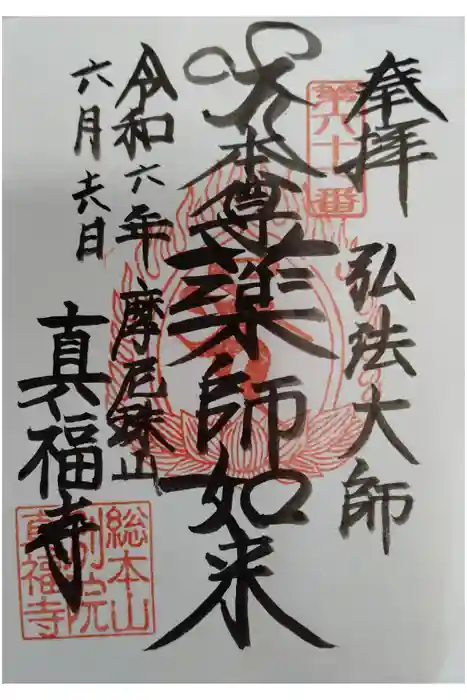 奉拝
弘法大師
第六十番
大本尊薬師如来
令和六年
六月六日
摩尼珠山
真福寺
総本山
別院
真福寺